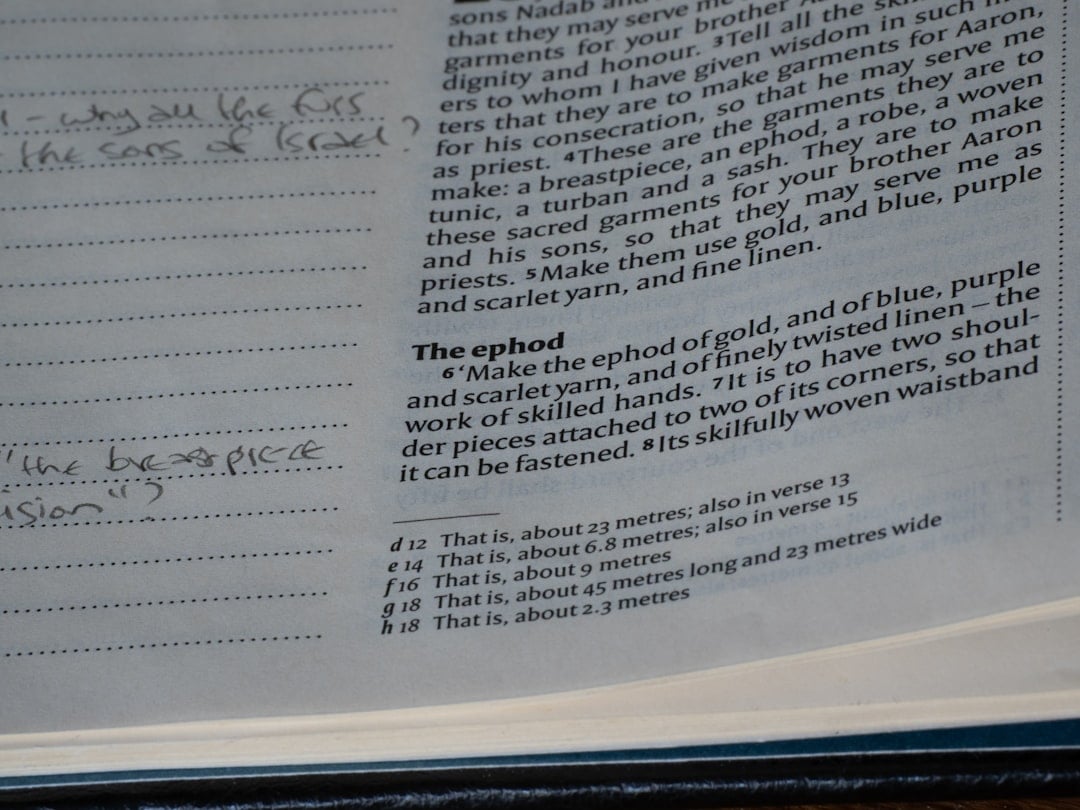 - why all the
the sons of Israel?
"the breastpiece
ision"?
sons Nadab and
that they may serve me
garments for your brother
dignity and honour. 3Tell all the
ers to whom I have given wisdom in such
ters that they are to make garments for Aaron,
for his consecration, so that he may serve me
as priest. 4These are the garments they are to
make: a breastpiece, an ephod, a robe, a woven
tunic, a turban and a sash. They are to make
these sacred garments for your brother Aaron
and his sons, so that they may serve me as
priests. 5Make them use gold, and blue, purple
and scarlet yarn, and fine linen.
The ephod
6‘Make the ephod of gold, and of blue, purple
and scarlet yarn, and of finely twisted linen – the
work of skilled hands. 7It is to have two shoul-
der pieces attached to two of its corners, so that
it can be fastened. 8Its skilfully woven waistband
d 12 That is, about 23 metres; also in verse 13
e 14 That is, about 6.8 metres; also in verse 15
f 16 That is, about 9 metres
g 18 That is, about 45 metres long and 23 metres wide
h 18 That is, about 2.3 metres